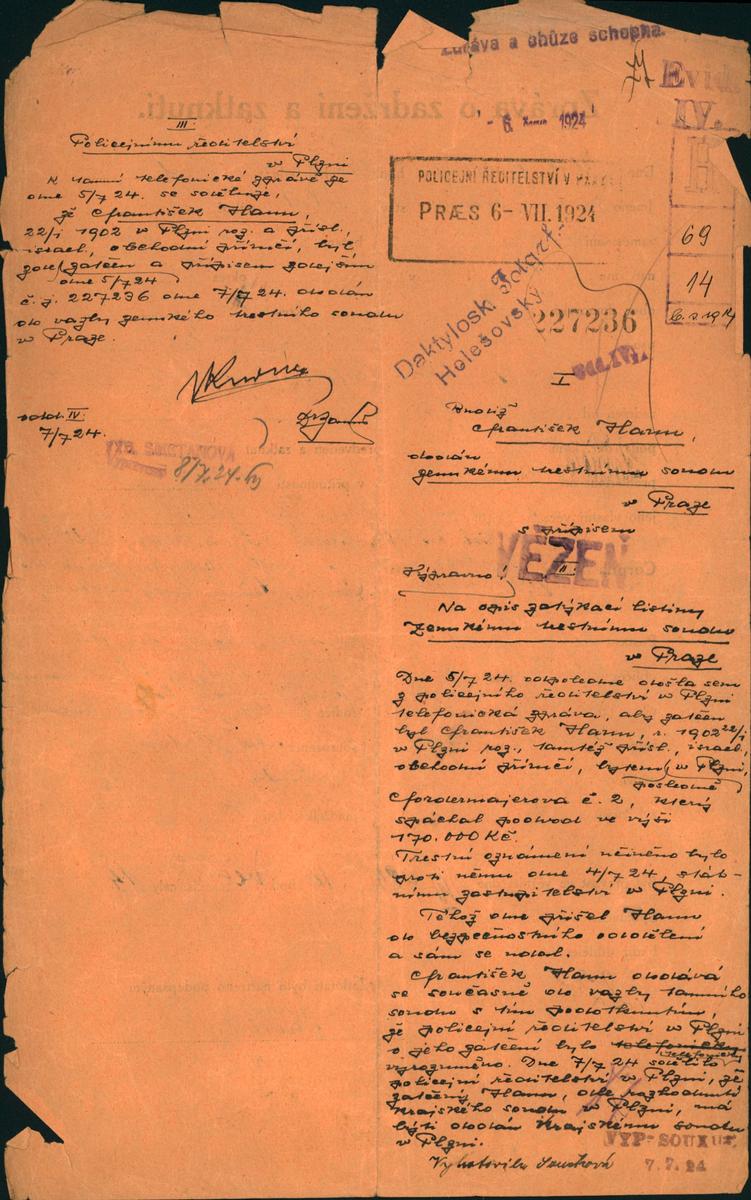 III
Policejnímu ředitelství
v Plzni
K tamní telefonické zprávě ze
dne 5/7 24. se sděluje,
že František Hamm,
22/I 1902 v Plzni roz. a přísl.,
israel., obchodní příručí, byl
zde zatčen a přípisem zdejším
dne 5/7 24
č.j. 227236 dne 7/7 24. dodán
do vazby zemského trestního soudu
v Praze.
odd. IV.
7/7 24.
8/7. 24.
Zpráva o zadržení a zatknutí.
Zdráva a chůze schopna.
77
Evid.
IV.
- 6. 1924
POLICEJNÍ ŘEDITELSTVÍ V PRAZE
PRÆS 6- VII. 1924
69
14
6. s 1914
Daktylosk. Fotgrf.
Helešovský
227236
I
Budiž
František Hamm,
dodán
zemskému trestnímu soudu
v Praze
s přípisem
VĚZEŇ
II.
Výpravno!
Na opis zatýkací listiny
Zemskému trestnímu soudu
v Praze
Dne 5/7 24. odpoledne došla sem
z policejního ředitelství v Plzni
telefonická zpráva, aby zatčen
byl František Hamm, r. 1902 22/I
v Plzni roz., tamtéž přísl., israel.,
obchodní příručí, bytem v Plzni,
posledně
Fordermajerova č. 2, který
spáchal podvod ve výši
170.000 Kč.
Trestní oznámení učiněno bylo
proti němu dne 4/7 24, stát-
nímu zastupitelství v Plzni.
Téhož dne přišel Hamm
do bezpečnostního oddělení
a sám se udal.
František Hamm dodává
se současně do vazby tamního
soudu s tím podotknutím,
že policejní ředitelství v Plzni
o jeho zatčení bylo telefonicky
telefonicky
vyrozuměno. Dne 7/7 24 sdělilo
policejní ředitelství v Plzni, že
zatčený Hamm, dle rozhodnutí
Krajského soudu v Plzni, má
býti dodán Krajskému soudu
v Plzni.
VYP. SOUKUP.
7. 7. 24
Vyhotovila